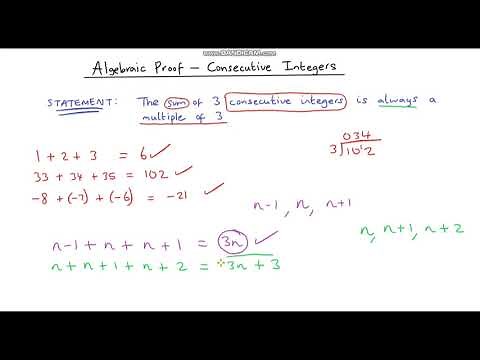 www.BANDICAM.com
Algebraic Proof – Consecutive Integers
STATEMENT: The sum of 3 consecutive integers is always a
multiple of 3
1 + 2 + 3 = 6 ✓
33 + 34 + 35 = 102 ✓
-8 + (-7) + (-6) = -21 ✓
034
3 10¹2
n-1, n, n+1
n, n+1, n+2
n-1 + n + n + 1 = 3n ✓
n + n + 1 + n + 2 = 3n + 3